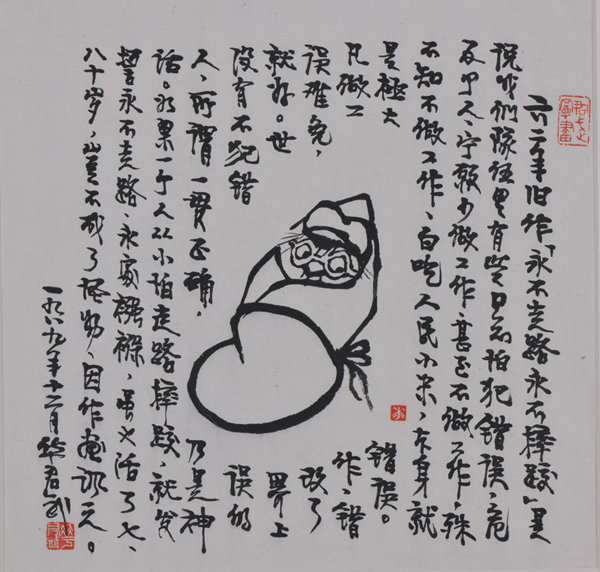 六二年旧作「永不走路永不摔跤」是
说我们队伍里有些同志怕犯错误，危
及个人，宁愿少做工作，甚至不做工作，殊
不知不做工作，白吃人民小米，本身就
是极大错误。
凡做工作，错
误难免，改了
就好。世界上
没有不犯错误的
人，所谓一贯正确，乃是神
话。如果一个人从小怕走路摔跤，就发
誓永不走路，永裹襁褓，虽又活了七、
八十岁，岂不成了怪物，因作画讽之。
一九八九年十二月华君武